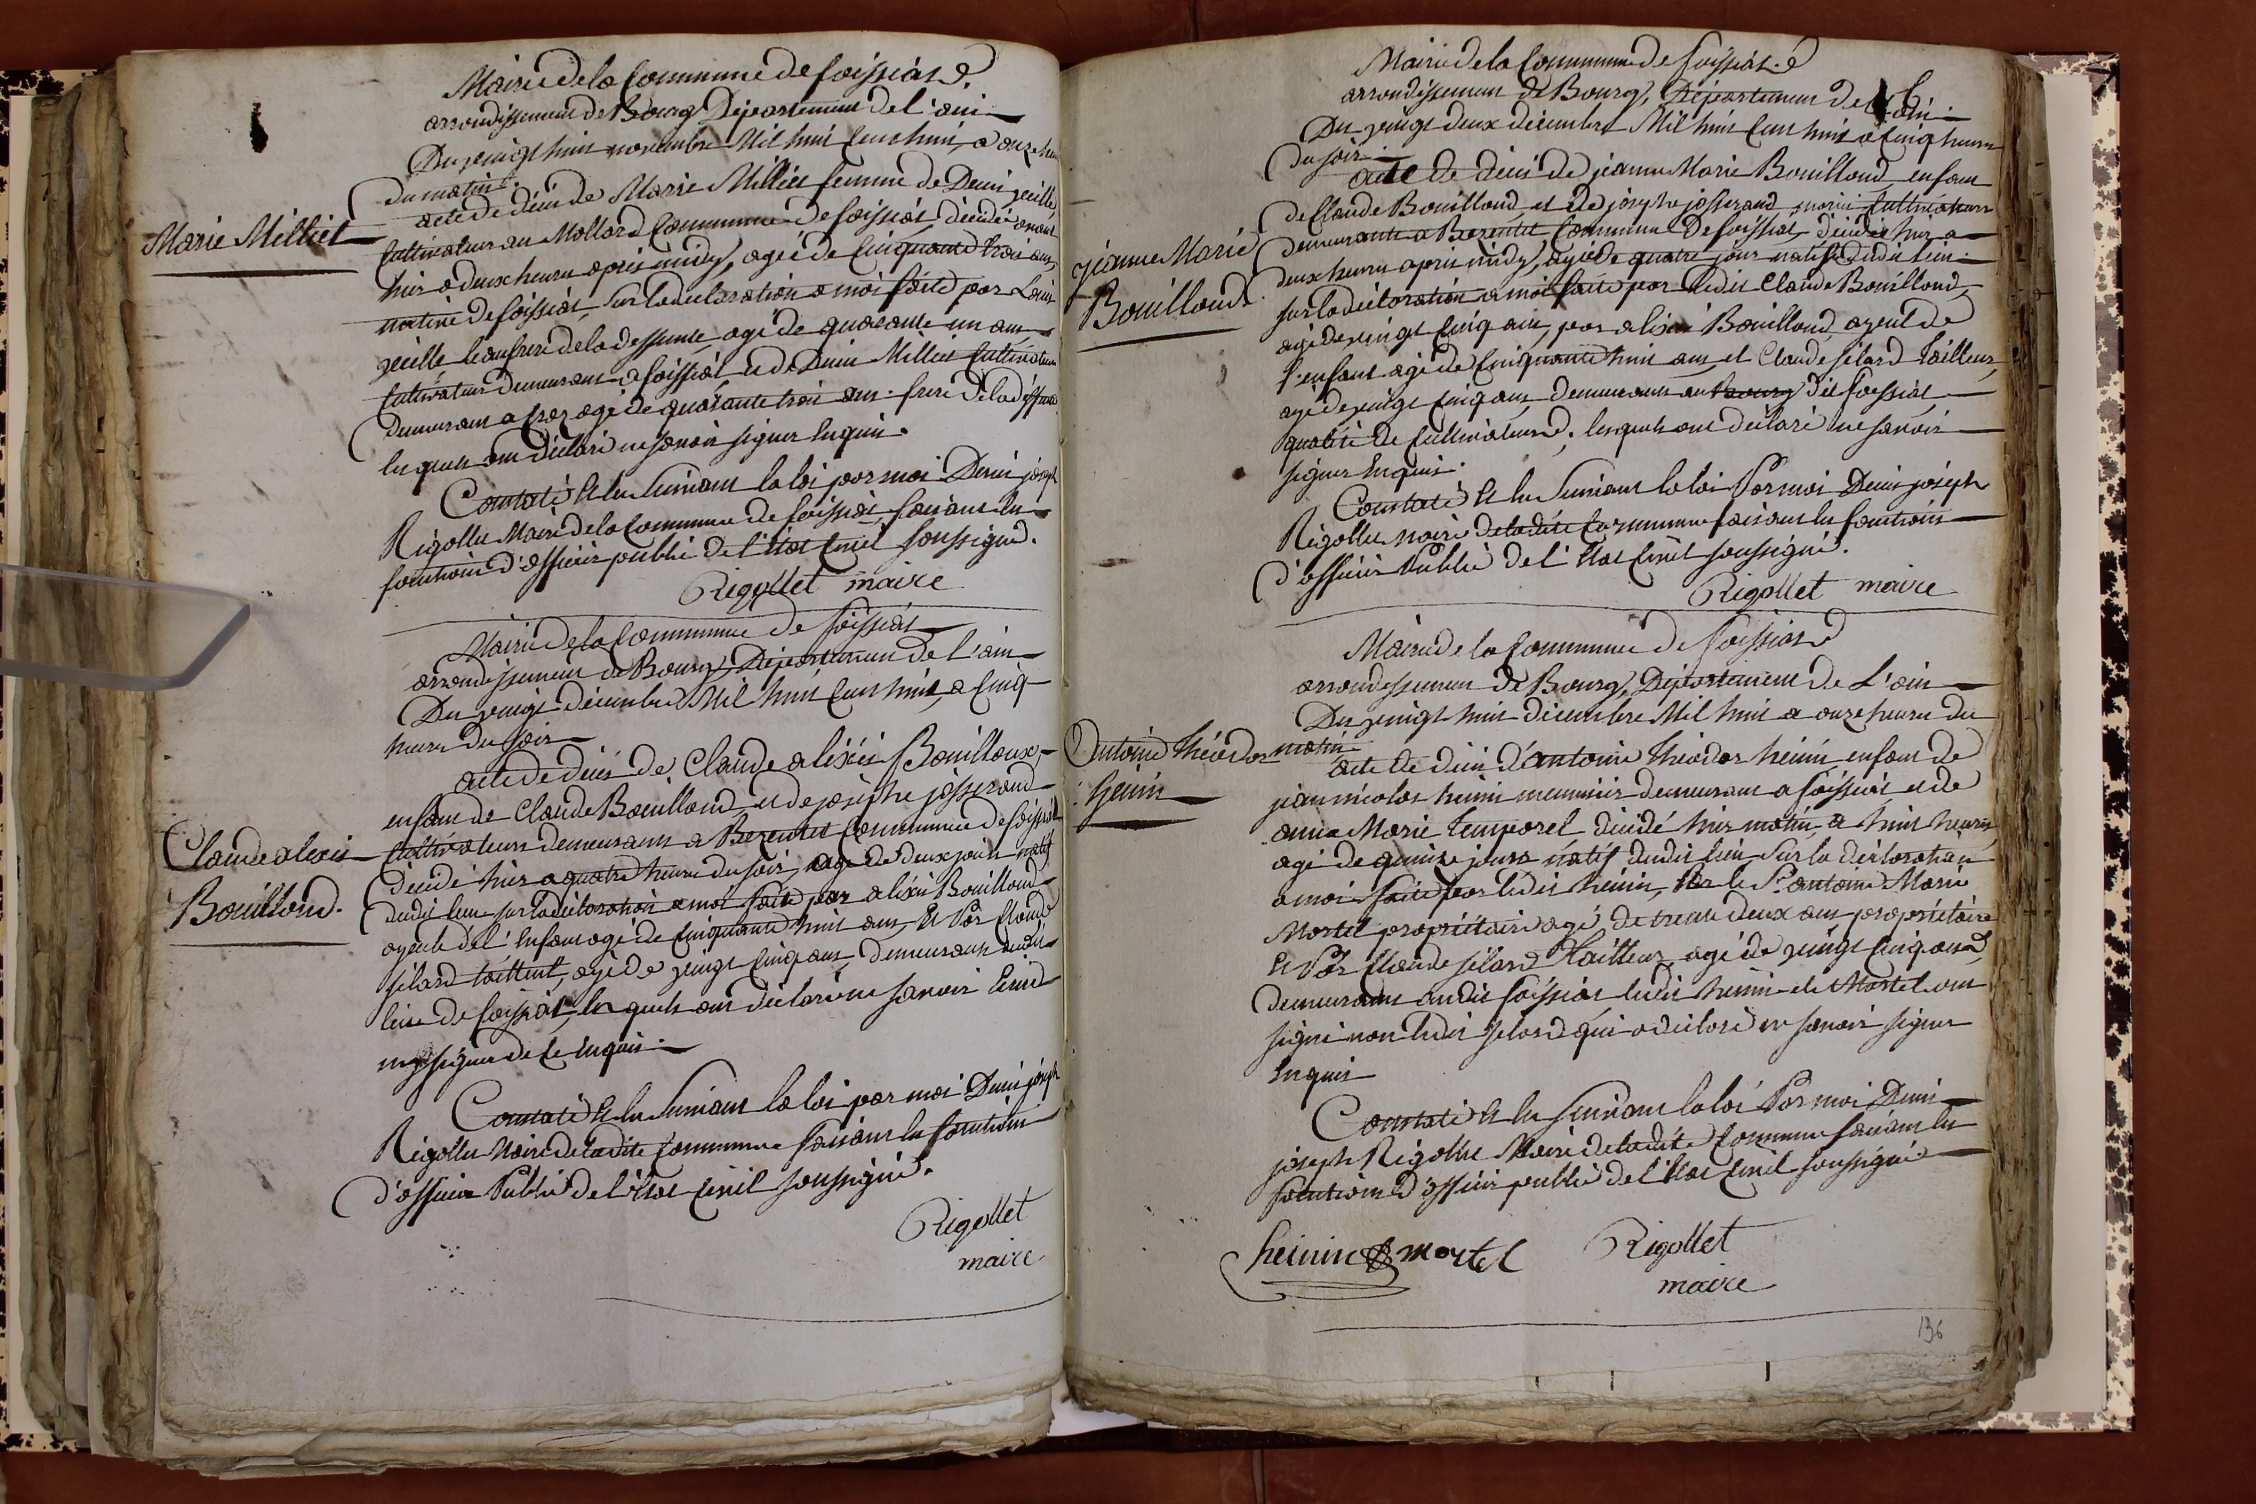 Mairie de la Commune de foissiat
arrondissement de Bourg Département de l'ain
Du vingt huit novembre Mil huit Cent huit, a onze heure
du matin.
acte de déces de Marie Milliet femme de Denis veille,
Marie Milliet
Cultivateur au Mollard Commune de foissiat, décédée avant
hier a deux heures après midy, agée de Cinquante trois ans,
native de foissiat, sur la declaration a moi faite par Louis
veille beaufrere de la deffunte, agé de quarante un ans
Cultivateur demeurant a foissiat et de Denis Milliet Cultivateur
demeurant a agé de quarante trois ans. frere de la deffunte
lesquels ont déclaré ne savoir signer Enquis.
Constaté Et lu Suivant la loi par moi Denis joseph
Rigollet Maire de la Commune de foissiat, faisant les
fonctions d'officier public de l'état Civil soussigné.
Rigollet maire
Mairie de la Commune de foissiat
arrondissement de Bourg, Département de l'ain
Du vingt décembre Mil huit Cent huit, a Cinq
heures du soir
acte de déces de Claude alixis Bouilloux,
enfant de Claude Bouilloud et de josephe josserand
Claude alexis
Bouilloud.
Cultivateurs demeurant a Bezentet Commune de foissiat
décédé hier a quatre heures du soir, agé de deux jours natif
dudit lieu sur la déclaration a moi faite par alixis Bouilloud
ayeule de l'Enfant agé de Cinquante huit ans, Et Par Claude
félard tailleur, agé de vingt Cinq ans, demeurant audit
lieu de foissiat, lesquels ont déclaré ne savoir Ecrire
ny signer de ce Enquis.
Constaté Et lu Suivant la loi par moi Denis joseph
Rigollet Maire de ladite Commune faisant les fonctions
d'officier Public de l'état Civil soussigné.
Rigollet
maire
Mairie de la Commune de foissiat
arrondissement de Bourg, Département de l'ain
Du vingt deux décembre Mil huit Cent huit a Cinq heures
du soir.
acte de déces de jeanne Marie Bouilloud enfant
de Claude Bouilloud et de josephe josserand Cultivateurs
jeanne Marie
Bouilloud.
demeurante a Bezentet Commune de foissiat, décédée hier a
deux heures après midy, agée de quatre jours native dudit lieu.
sur la déclaration a moi faite par ledit Claude Bouilloud,
agé de vingt Cinq ans, par alixis Bouilloud, ayeul de
l'enfant agé de Cinquante huit ans, et Claude félard tailleur,
agé de vingt Cinq ans, demeurants au bourg dit foissiat,
qualité de Cultivateurs. lesquels ont déclaré ne savoir
signer Enquis.
Constaté Et lu Suivant la loi Par moi Denis joseph
Rigollet maire de ladite Commune faisant les fonctions
d'officier Public de l'Etat Civil soussigné.
Rigollet maire
Mairie de la Commune de foissiat
arrondissement de Bourg, Département de L'ain
Du vingt huit décembre Mil huit a onze heures du
matin
acte de déces d'antoine théodor heinin enfant de
Antoine théodor
heinin
jean nicolas heinin menuisier demeurant a foissiat et de
anne Marie Temporel décédé hier matin, a huit heures,
agé de quinze jours natif dudit lieu sur la déclaration
a moi faite par ledit heinin, par le Sr. antoine Marie
Mortel propriétaire agé de trente deux ans propriétaire
Et Par Claude félard Tailleur agé de vingt Cinq ans,
demeurants audit foissiat, ledit heinin et Mortel ont
signé non ledit felard qui a déclaré ne savoir signer
Enquis
Constaté Et lu Suivant la loi Par moi Denis
joseph Rigollet Maire de ladite Commune faisant les
fonctions d'officier public de l'Etat Civil soussigné
heinin mortel Rigollet
maire
136